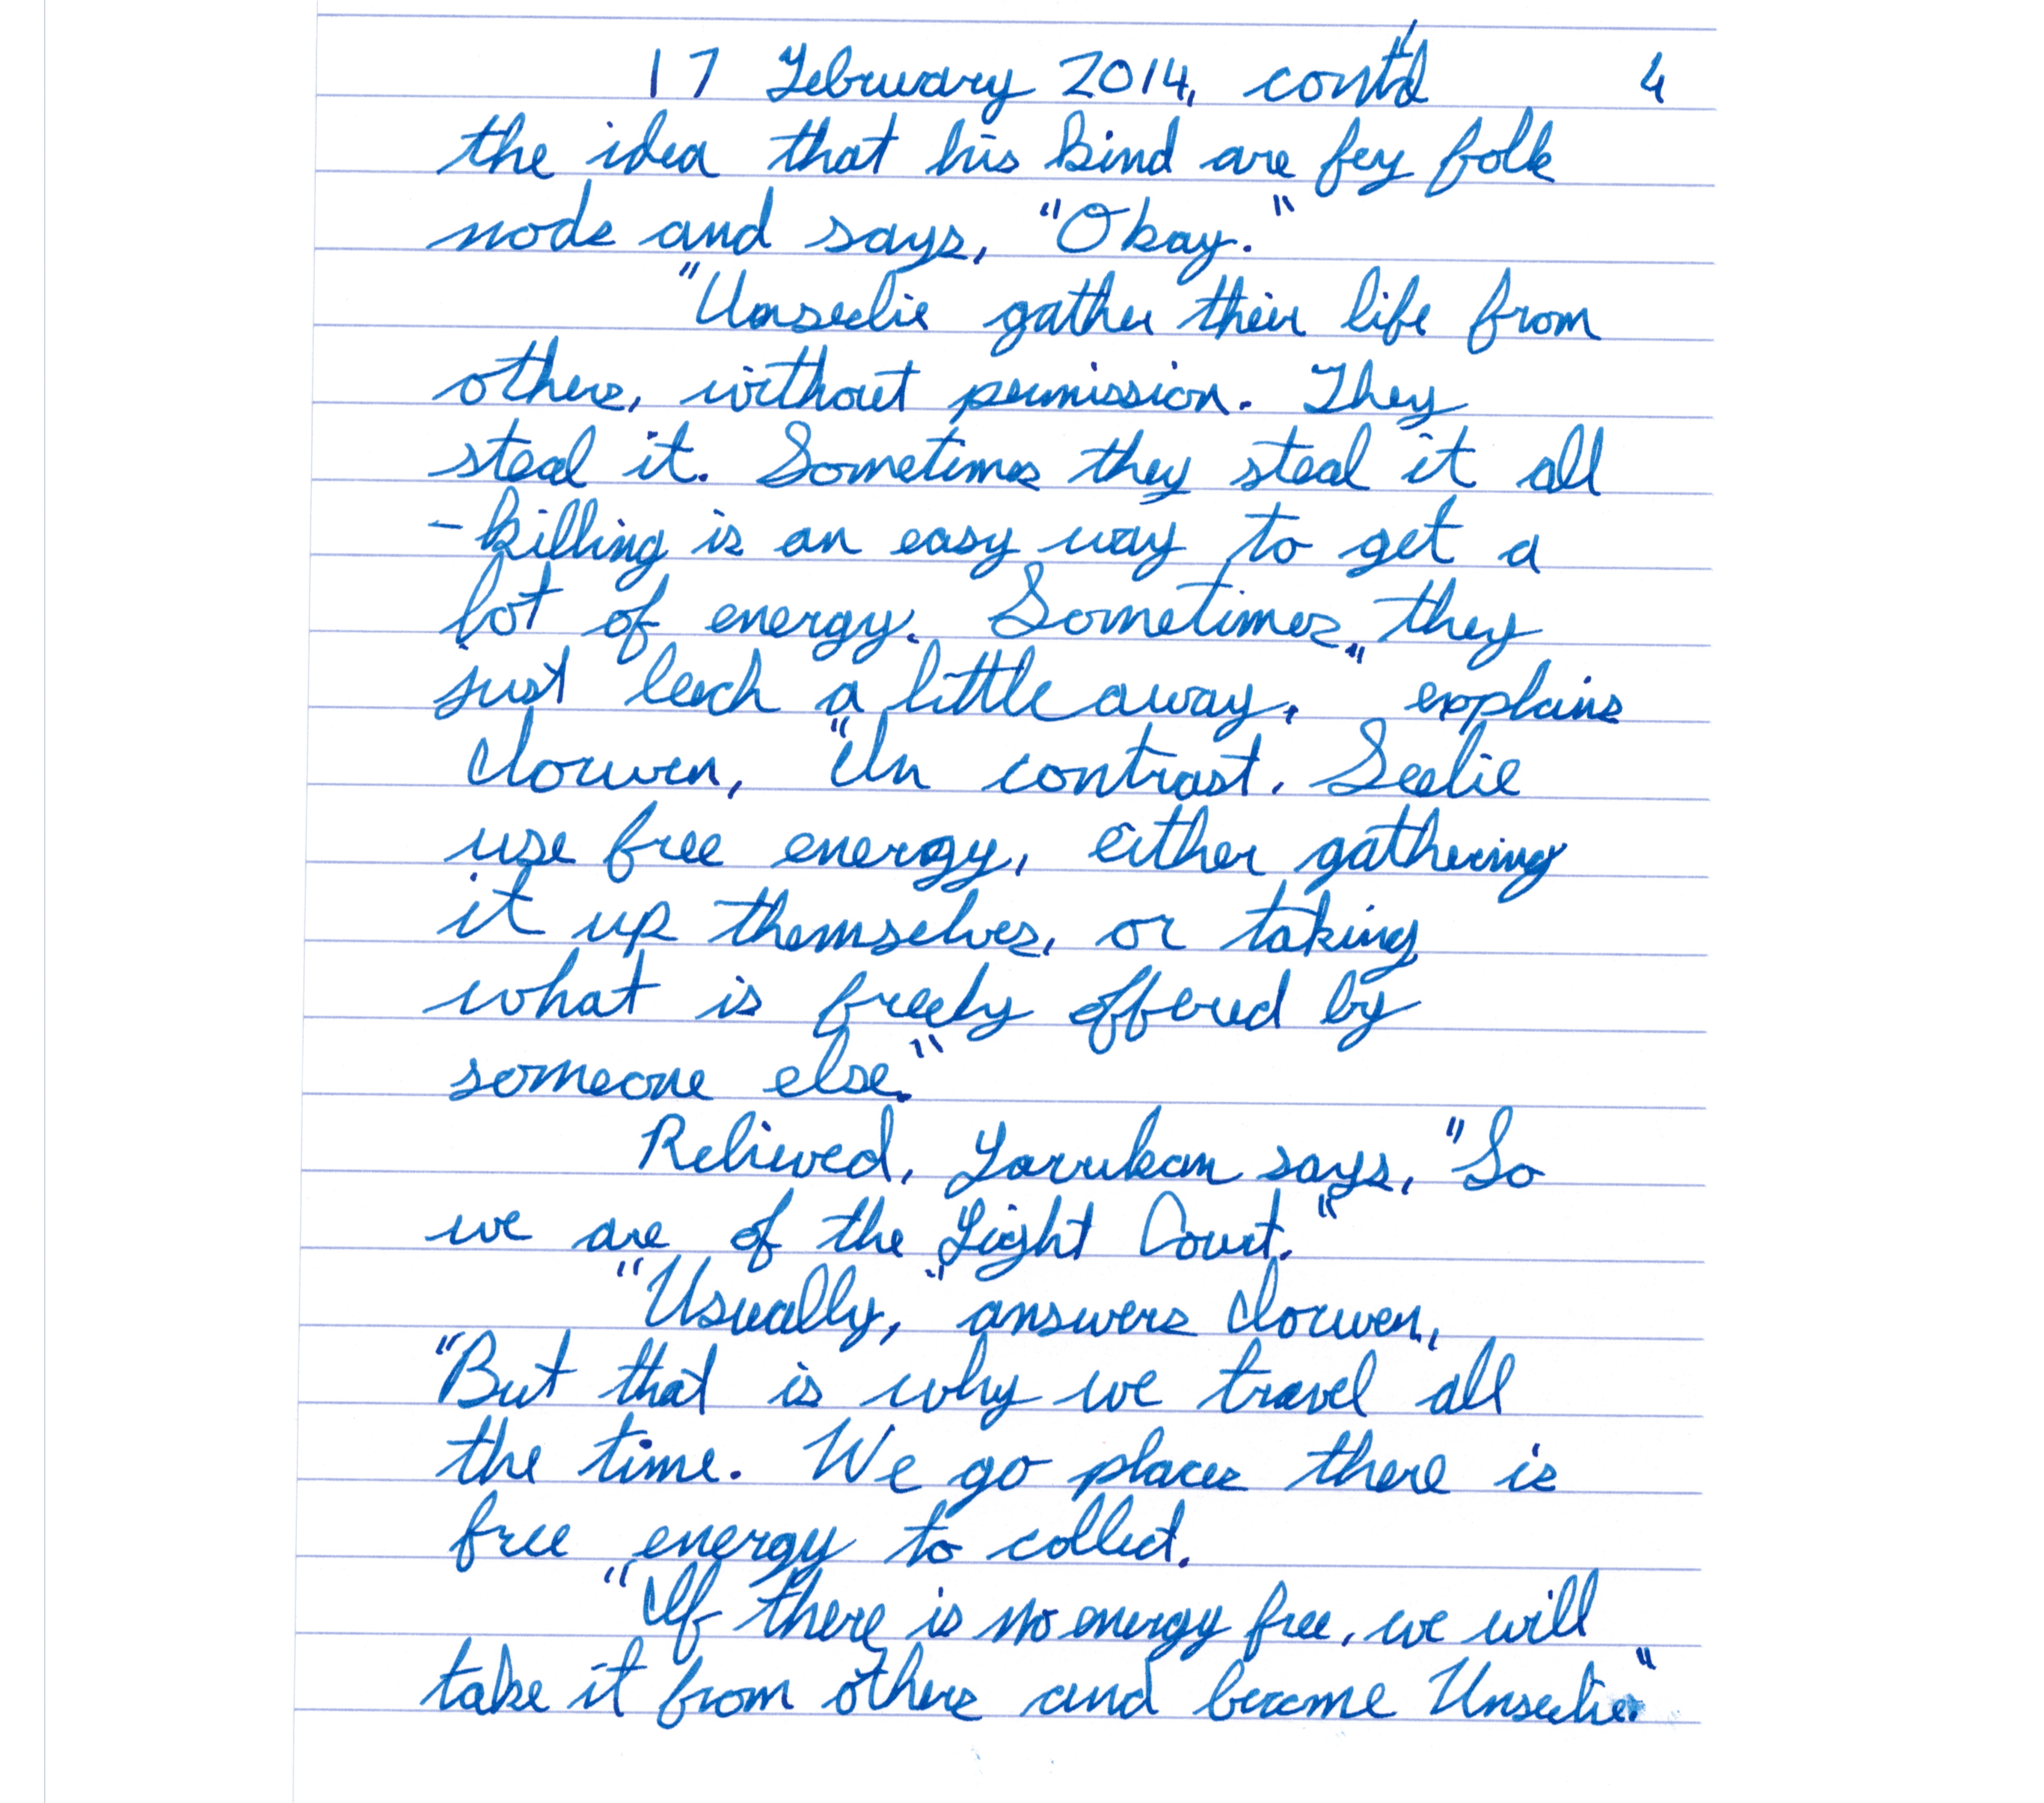 17 February 2014, cont'd 4
the idea that his kind are fey folk
nods and says, "Okay."
"Unseelie gather their life from
others, without permission. They
steal it. Sometimes they steal it all
-killing is an easy way to get a
lot of energy. Sometimes, they
just leech a little away," explains
Iorwen, "In contrast, Seelie
use free energy, either gathering
it up themselves, or taking
what is freely offered by
someone else."
Relieved, Yarrukan says, "So
we are of the Light Court."
"Usually," answers Iorwen,
"But that is why we travel all
the time. We go places there is
free energy to collect.
"If there is no energy free, we will
take it from others and become Unseelie."